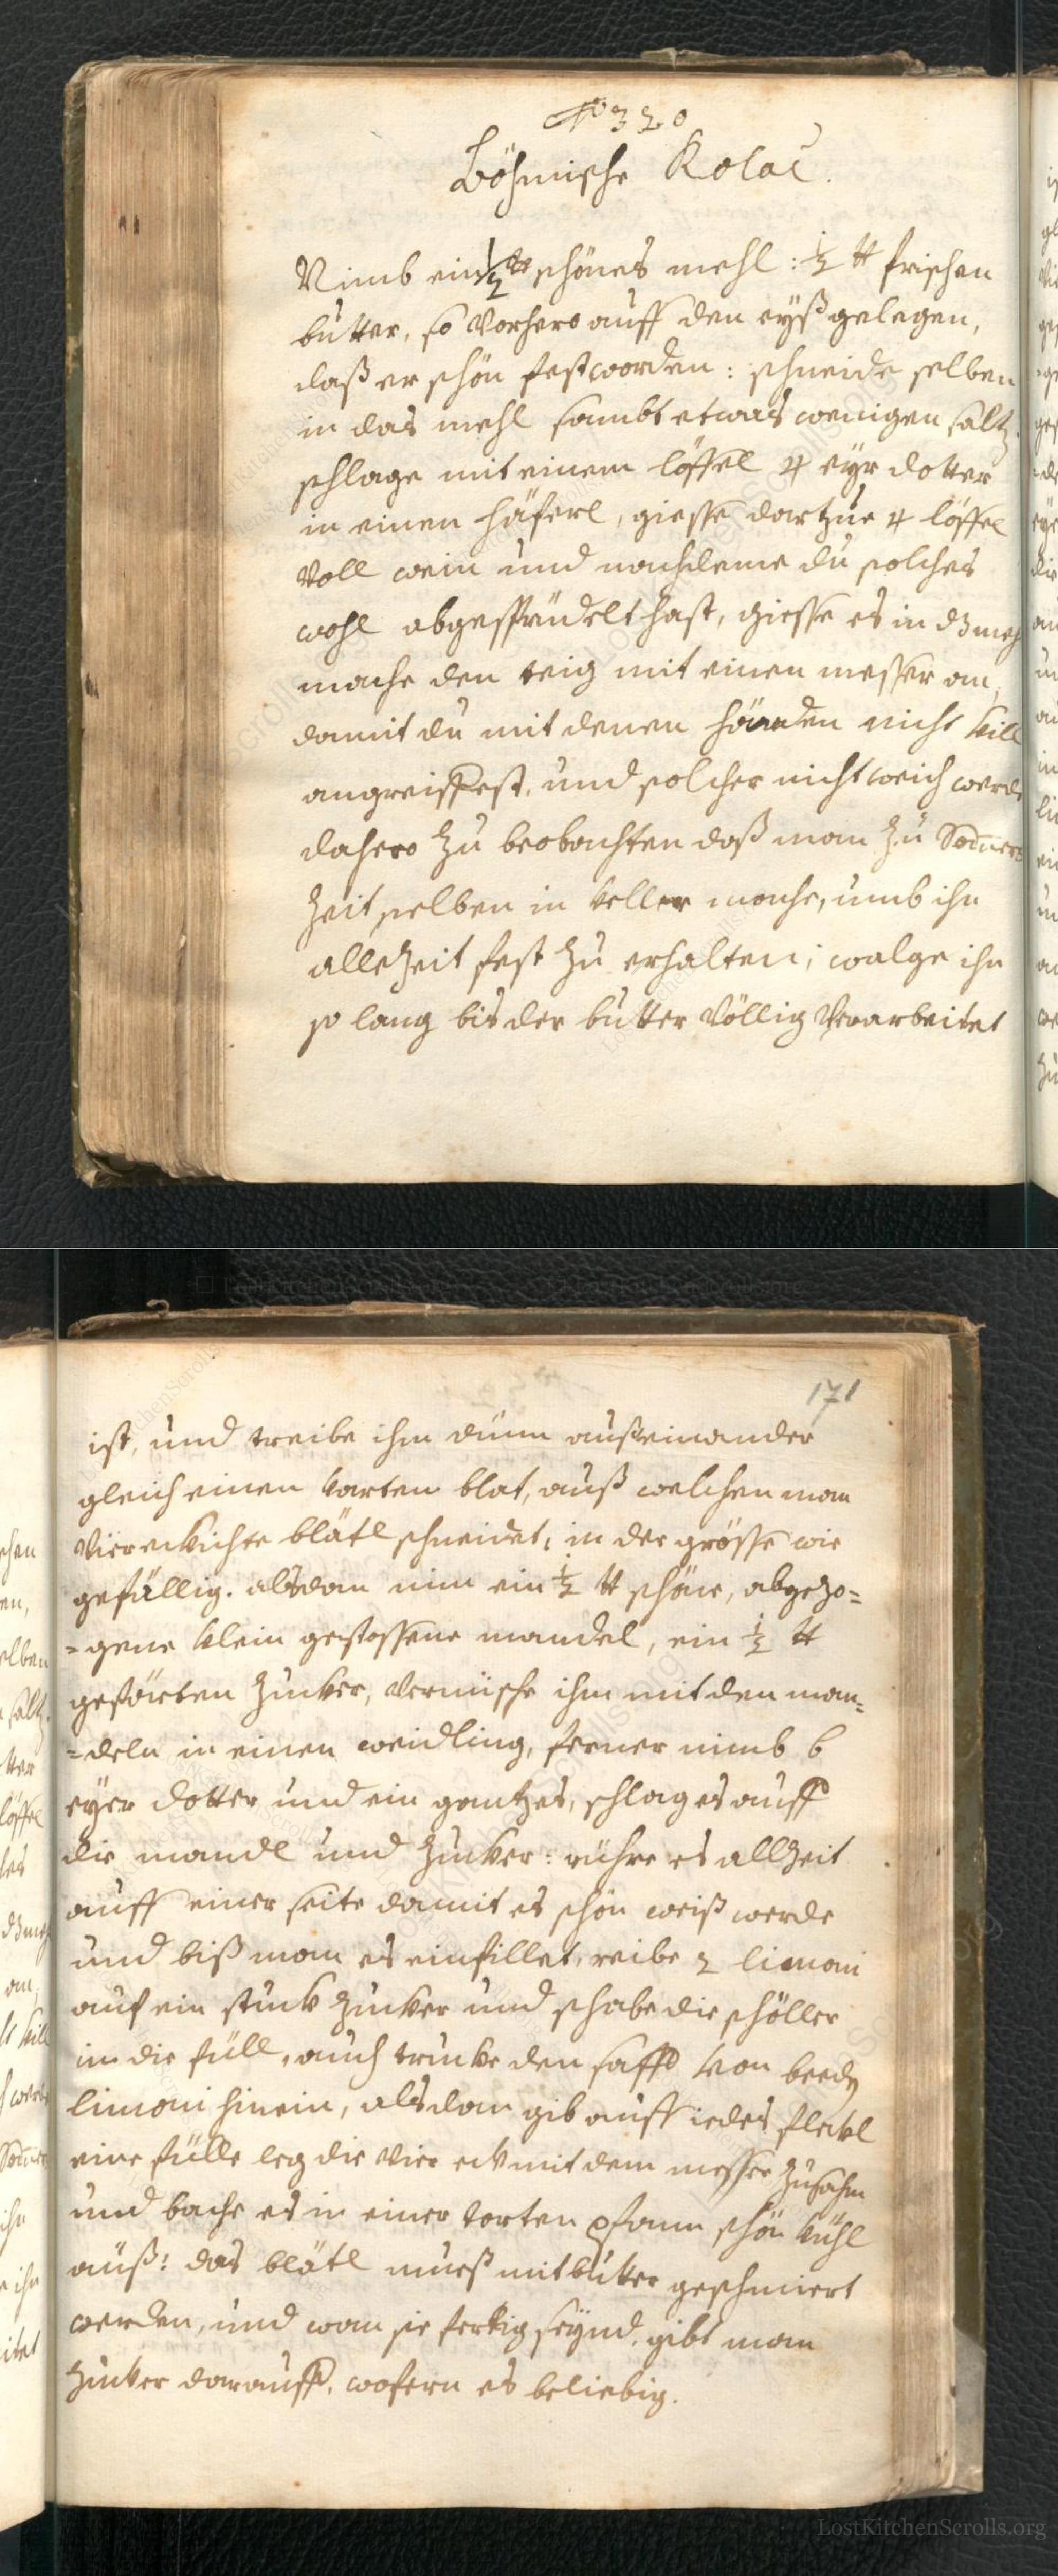 No 320
Böhmische Kolac.
Nimb ein ½ ℔ schönes mehl: ½ ℔ frischen
butter, so vorhero auff den eyß gelegen,
daß er schön fest worden: schneide selben
in das mehl sambt etwas wenigen saltz.
schlage mit einem löffel 4 eyr dotter
in einen häferl, giesse dartzue 4 löffel
voll wein und nachdeme du solches
wohl abgesprüdelt hast, giesse es in dz meh
mache den teig mit einen messer an,
damit du mit denen händen nicht vill
angreiffest, und solcher nicht weich werde
dahero zu beobachten daß man zu Som̅ers
zeit selben in keller mache, umb ihn
allezeit fest zu erhalten; walge ihn
so lang bis der butter völlig verarbeitet
171
ist, und treibe ihm dünn außeinander
gleich einen karten blat, auß welchen man
viereckichte blätl schneidet, in der grösse wie
gefällig. alsdan nim ein ½ ℔ schöne, abgezo=
=gene klein gestossene mandel, ein ½ ℔
gefäeten zucker, vermische ihm mit den man=
=deln in einen weidling, ferner nimb 6
eyer dotter und ein gantzes, schlag es auff
die mandl und zucker: rühre es allzeit
auff einer seite damit es schön weiß werde
und biß man es einfillet, reibe 2 limoni
auf ein stuck zucker und schabe die schöller
in die füll, auch trucke den safft von beeden
limoni hinein, alsdan gib auff iedes fleckl
eine fülle leg die vier eck mit dem messer zusahm
und bache es in einer torten pfann schön kühl
auß: das blätl mues mit butter geschmiert
werden, und wan sie fertig seynd, gibt man
zucker darauff, wofern es beliebig.
LostKitchenScrolls.org